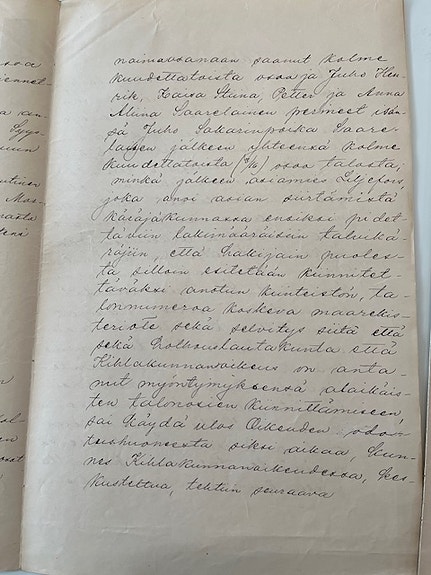 naimaosanaan saanut kolme
kuudettatoista osaa ja Juho Hen-
rik, Kaisa Stiina, Petter ja Anna
Alina Saarelainen perineet isän-
sä Juho Sakarinpoika Saare-
laisen jälkeen yhteensä kolme
kuudettatoista (3/16) osaa talosta;
minkä jälkeen asiamies
joka anoi asian siirtämistä
käräjäkunnassa ensiksi pidet-
täviin lakimääräisiin talvikä-
räjiin, että hakijain puoles-
ta silloin esitetään kiinnitet-
täväksi anotun kiinteistön, ta-
lonnumeroa koskeva maarekis-
teriote sekä selvitys siitä että
sekä Holhouslautakunta että
Kihlakunnanoikeus on anta-
nut myöntymyksensä alaikäis-
ten talonosien kiinnittämiseen,
sai käydä ulos Oikeuden odo-
tushuoneesta siksi aikaa, kun-
nes Kihlakunnanoikeudessa, kes-
kusteltua, tehtiin seuraava